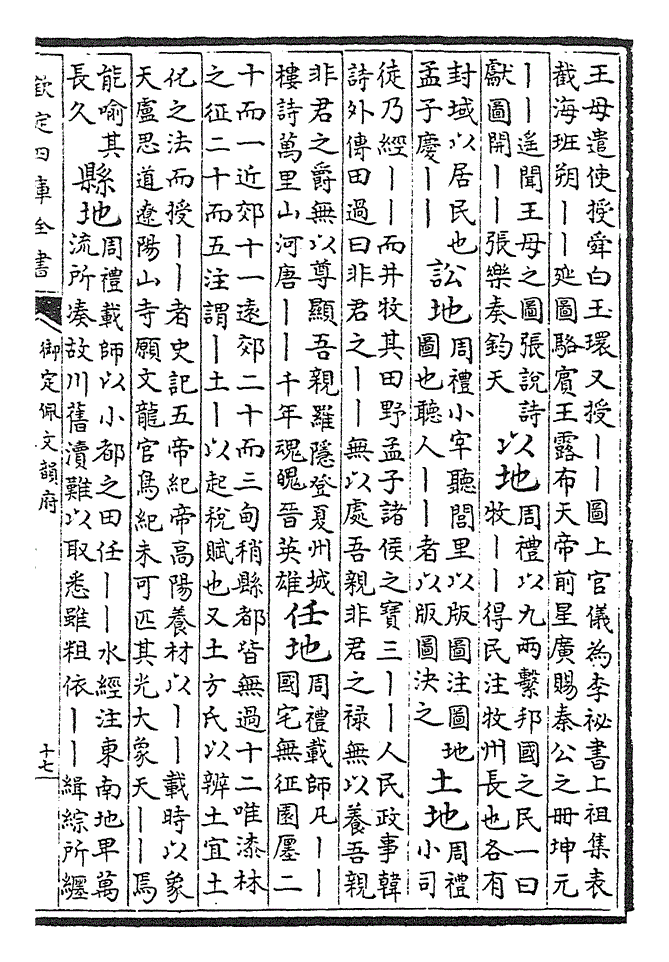 王母遣使授舜白玉環又授丨丨圖上官儀為李祕書上祖集表
截海班朔丨丨延圖駱賓王露布天帝前星廣賜秦公之冊坤元
丨丨遙聞王母之圖張說詩
獻圖開丨丨張樂奏鈞天
以地
周禮以九兩繫邦國之民一曰
牧丨丨得民注牧州長也各有
封域以居民也
孟子慶丨丨
訟地
周禮小宰聽閭里以版圖注圖地
圖也聽人丨丨者以版圖決之
土地
周禮
小司
徒乃經丨丨而井牧其田野孟子諸侯之寶三丨丨人民政事韓
詩外傳田過曰非君之丨丨無以處吾親非君之祿無以養吾親
非君之爵無以尊顯吾親羅隱登夏州城
樓詩萬里山河唐丨丨千年魂魄晉英雄
任地
周禮載師凡丨丨
國宅無征園廛二
十而一近郊十一遠郊二十而三甸稍縣都皆無過十二唯漆林
之征二十而五注謂丨土丨以起稅賦也又土方氏以辨土宜土
化之法而授丨丨者史記五帝紀帝高陽養材以丨丨載時以象
天盧思道遼陽山寺願文龍官鳥紀未可匹其光大象天丨丨焉
能喻其
長久
縣地
周禮載師以小都之田任丨丨水經注東南地卑萬
流所湊故川舊瀆難以取悉雖粗依丨丨緝綜所纏
欽定四庫全書
御定佩文韻府
十七